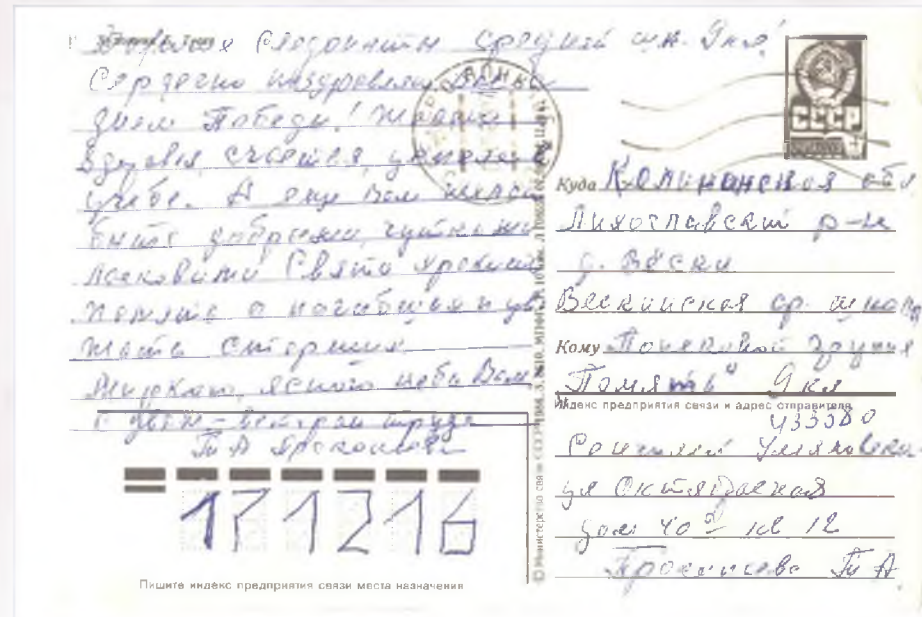 Дорогие следопыты средней шк. 9кл!
Сердечно поздравляю Вас с
днем Победы! Желаю
здоровья, счастья, успехов в
учебе. А еще Вам желаю
быть добрыми, чуткими
ласковыми Свято храните
память о погибших и ува
жать старших
Мирного, ясного неба Вам
С уваж - ветеран труда
Т А Прокопьева
171216
Пишите индекс предприятия связи места назначения
СССР
Куда Калининская обл
Лихославский р-н
д. Вёски
Вескинская ср. школа
Кому Поисковой группе
"Память" 9кл
Индекс предприятия связи и адрес отправителя
433380
Ульяновская
ул Октябрьская
дом 40 кв 12
Т А
© Министерство связи СССР